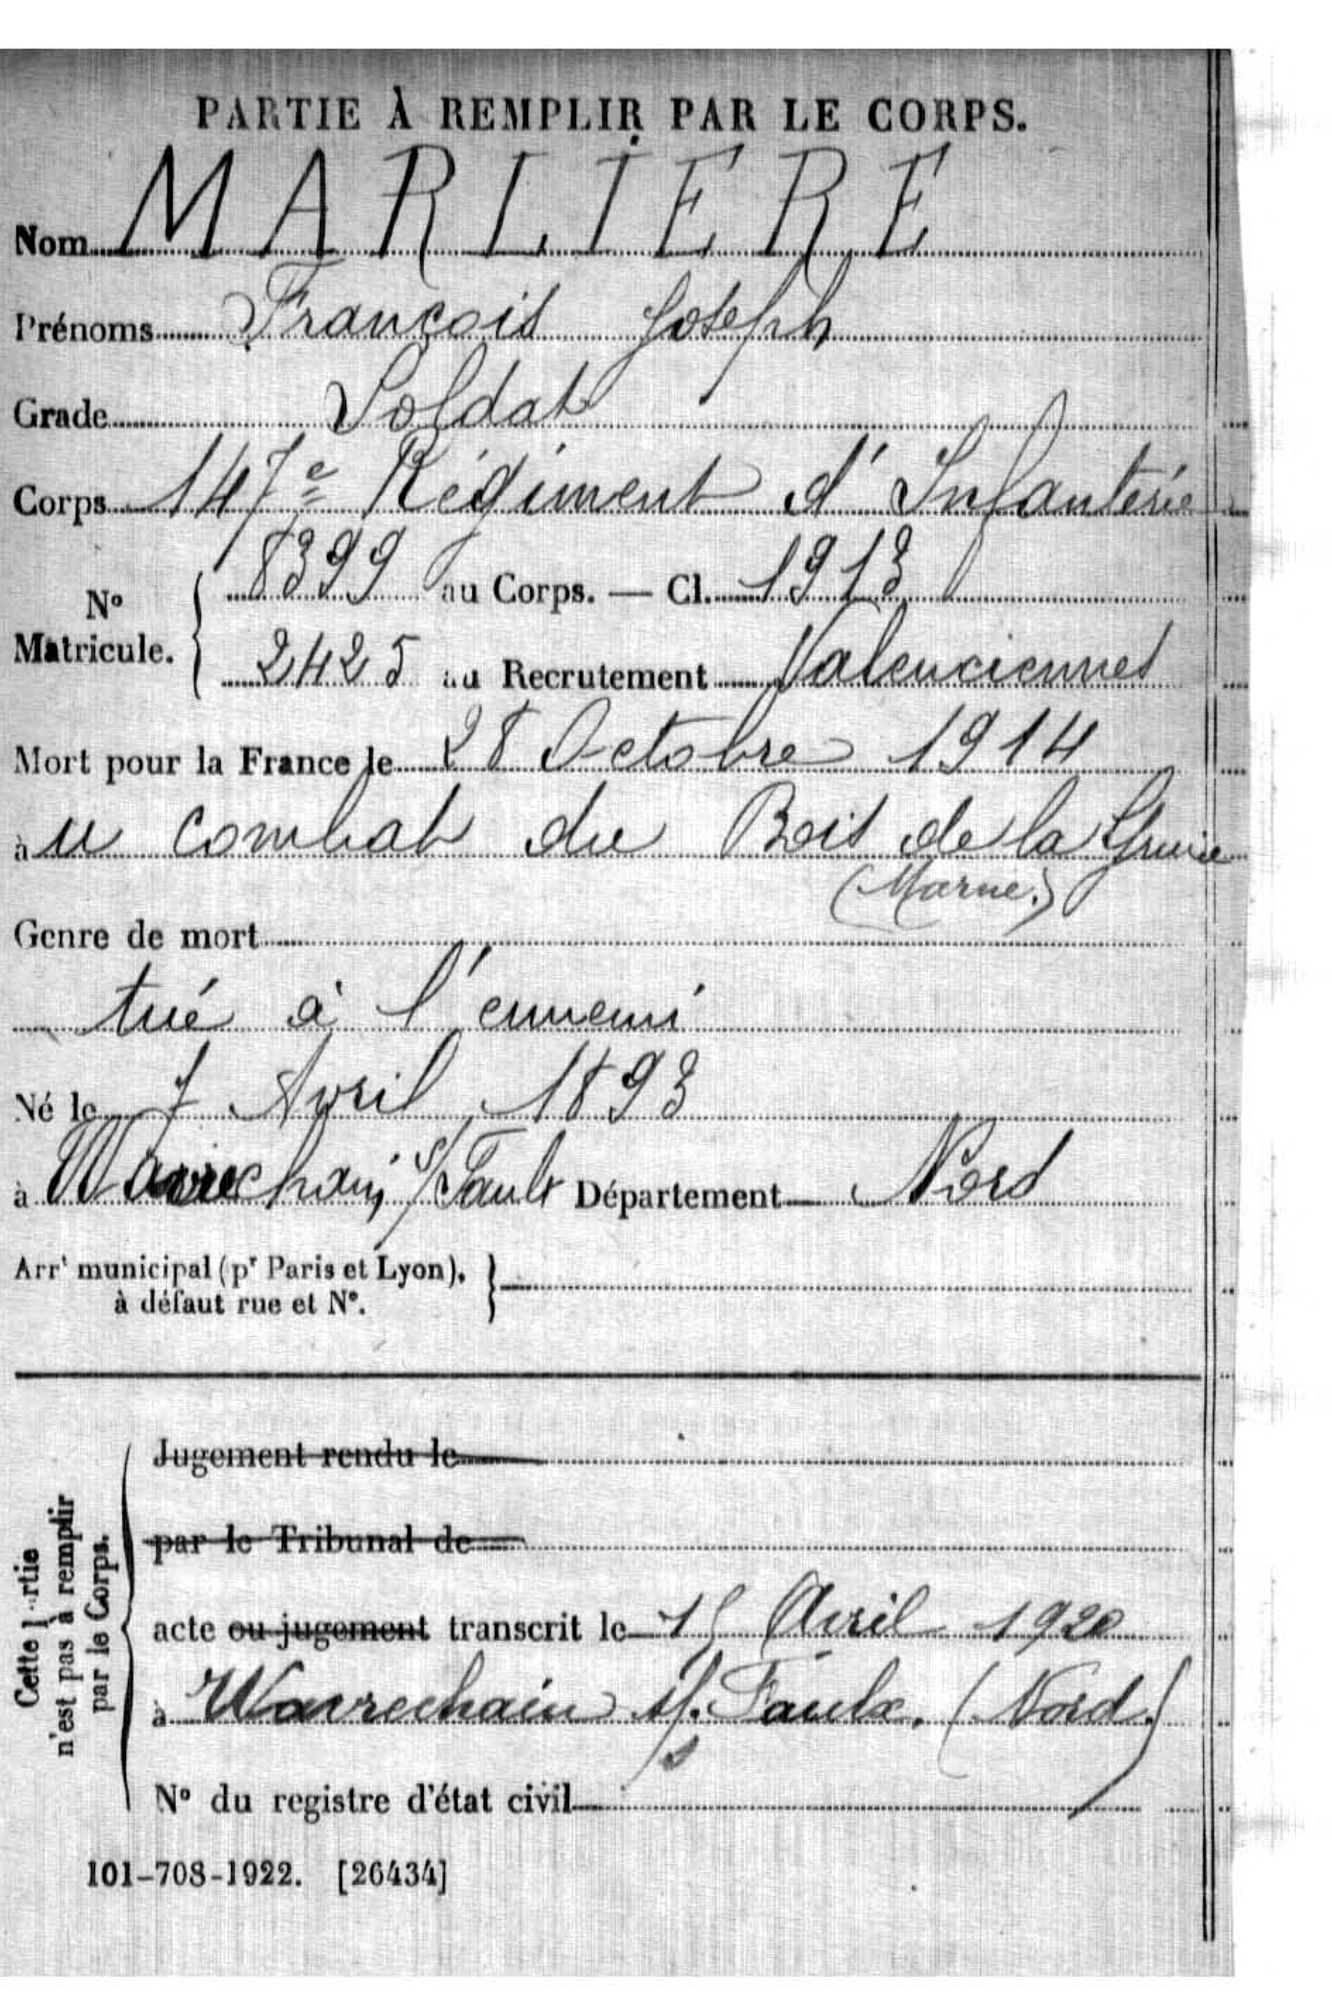 PARTIE À REMPLIR PAR LE CORPS.
Nom MARLIERE
Prénoms François Joseph
Grade Soldat
Corps 147e Régiment d'Infanterie
8399 au Corps. — Cl. 1913
N° Matricule.
2425 au Recrutement Valenciennes
Mort pour la France le 28 Octobre 1914
àu combat du Bois de la Grurie
(Marne.)
Genre de mort
tué à l'ennemi
Né le 7 Avril 1893
à Wavrechain s/Faulx Département Nord
Arrt municipal (pr Paris et Lyon),
à défaut rue et N°.
Jugement rendu le
par le Tribunal de
acte ou jugement transcrit le 15 Avril 1920
à Wavrechain s/s Faulx. (Nord.)
N° du registre d'état civil
Cette Partie
n'est pas à remplir
par le Corps.
101-708-1922. [26434]